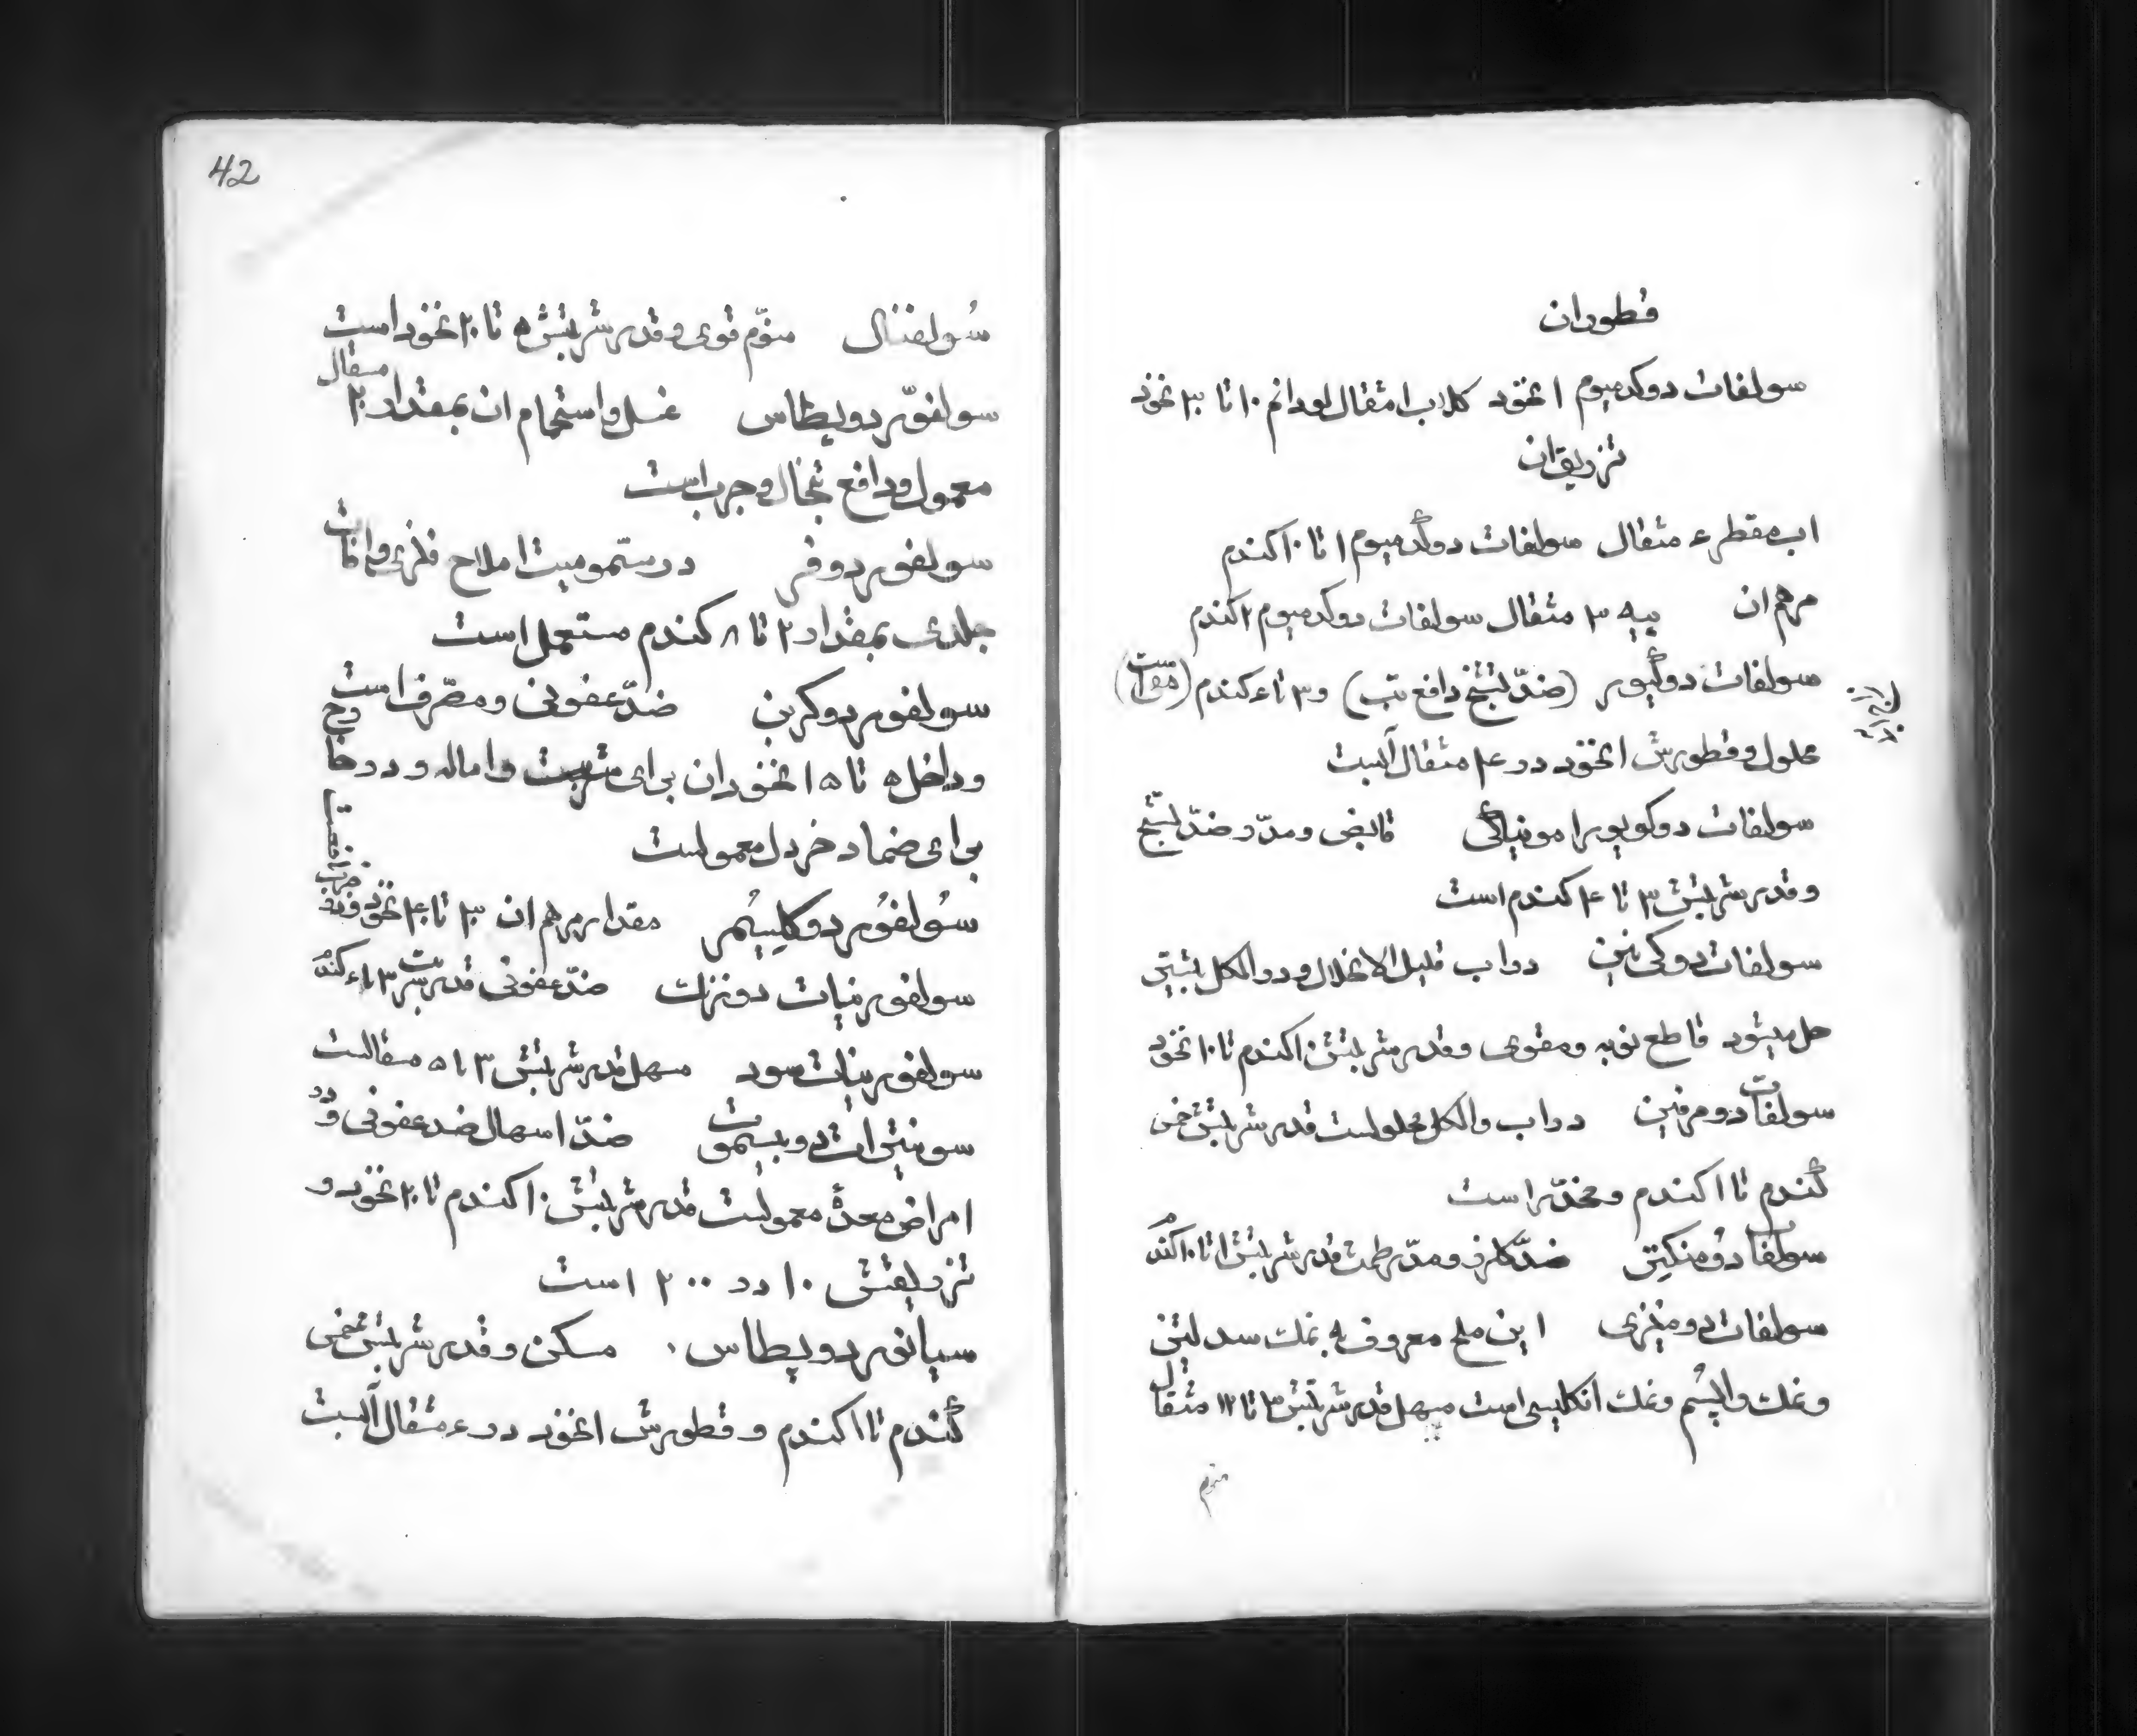 قطور ان
سولفات دو کدمیوم ۱ نخود کلاب ۱ مثقال لودانم ۱۰ تا ۳۰ نخود
تزریق ان
اب مقطر ۴ مثقال سولفات دو گدمیوم ۱ تا ۱۰ کندم
مرهم ان پیه ۳ مثقال سولفات دو کدمیوم ۲ کندم
سولفات دو گیور (ضدّ تشنج دافع تب) و ۳ تا ۴ کندم (مقوی است)
محلول و قطورش ۱ نخود در ۴۰ مثقال آبست
سولفات دو کویور امونیاکی قابض و مدرّ و ضدّ تشنّج
و قدر شربتش ۳ تا ۴ کندم است
سولفات دو کی نین در اب قلیل الانحلال و در الکل بیشتر
حل میشود قاطع نوبه و مقوی و قدر شربتش ۱۰ کندم تا ۱۰ نخود
سولفات دو مرفین در اب و الکل محلولست قدر شربتش خمس
گندم تا ۱ کندم و مخدّر است
سولفات دو منکنیز ضدّ کلرز و مدرّ طمث قدر شربتش ۱ تا ۱۰ کندم
سولفات دو منیزی این ملح معروف به نمک سدلیتز
و نمک و اپسُم و نمک انکلیسی است مسهل قدر شربتش ۳ تا ۱۲ مثقال
منوم
42
سُولفنال منوّم قوی و قدر شربتش ۵ تا ۲۰ نخود است
سولفوّر دو پطاس غسل و استحمام ان بمقدار ۲۰ مثقال
معمول و دافع تبخال و جرب است
سولفور دو فر در سمّومیت املاح فلزی و افات
جلدی بمقدار ۲ تا ۸ کندم مستعمل است
سولفور دو کربن ضدّ عفونی و مصرف است
و داخل ۵ تا ۱۵ نخود ان برای شربت و اماله و در خارج
برای ضماد خردل معمولست
سُولفُور دو کلسیُم مقدار مرهم ان ۳۰ تا ۴۰ نخود
سولفور نیات دو نزات ضدّ عفونی قدر شربت ۳ تا ۴ کندم
سولفور نیات سود مسهل قدر شربتش ۳ تا ۵ مثقالست
سونیترات دو بیسموت ضدّ اسهال ضد عفونی و در
امراض معدهٔ معمولست قدر شربتش ۱۰ کندم تا ۲۰ نخود و
تزریقش ۱۰ در ۲۰۰ است
سیانور دو پطاس مسکن و قدر شربتش خمس
گندم تا ۱ کندم و قطورش ۱ نخود در ۴ مثقال آبست